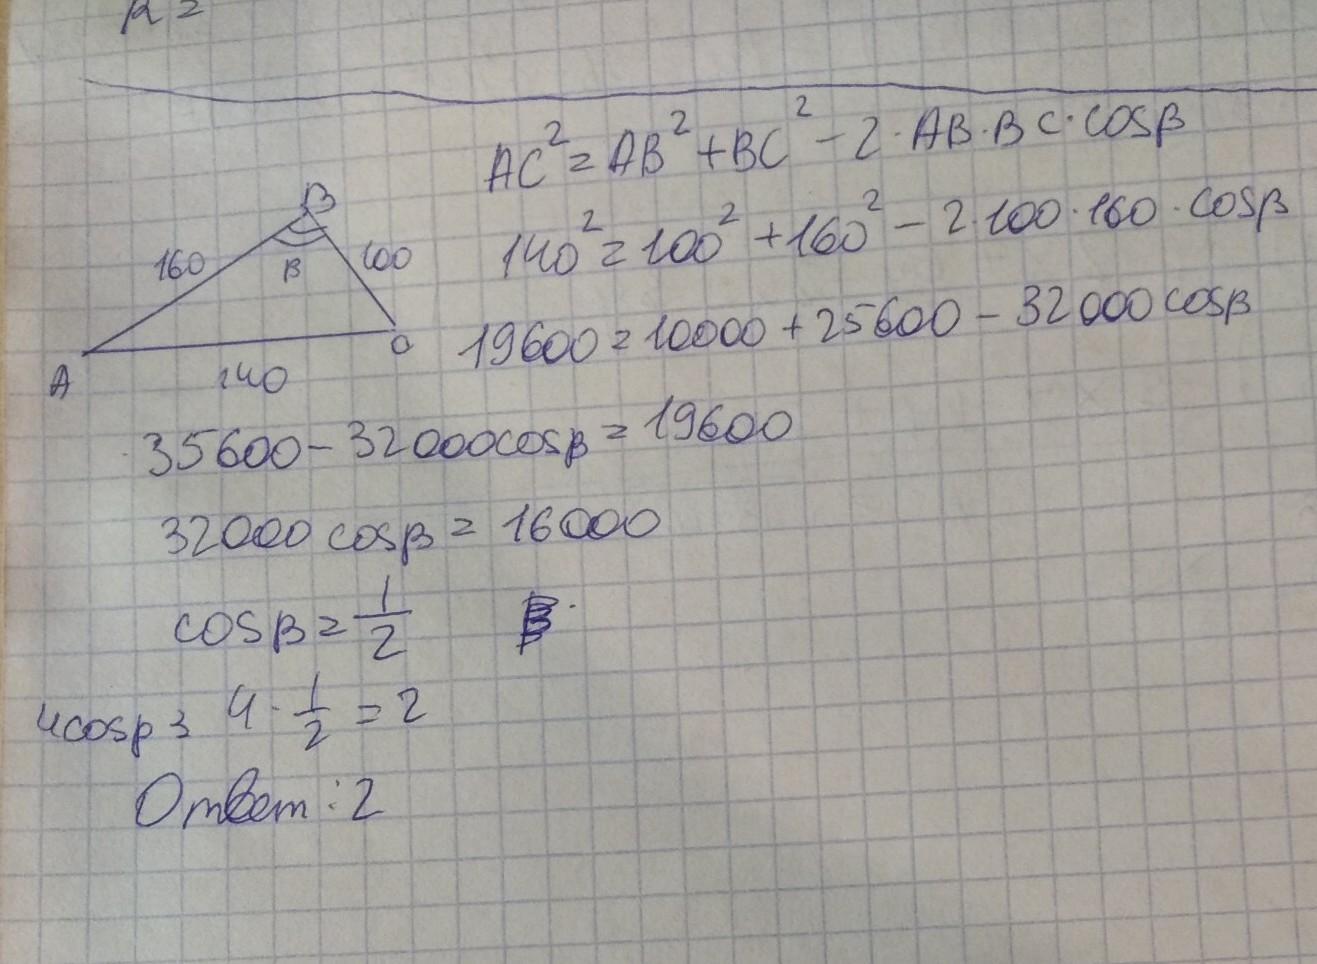 R =
AC² = AB² + BC² - 2·AB·BC·cosβ
B
160
β
100
140² = 100² + 160² - 2·100·160·cosβ
19600 = 10000 + 25600 - 32000cosβ
A
C
140
35600 - 32000cosβ = 19600
32000 cosβ = 16000
cosβ = 1/2
4cosβ = 4 · 1/2 = 2
Ответ: 2